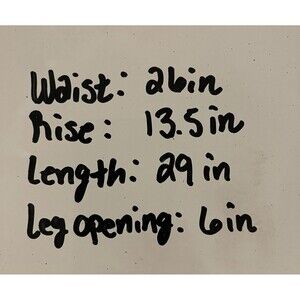 Waist: 26in
Rise: 13.5in
Length: 29in
Leg opening: 6in